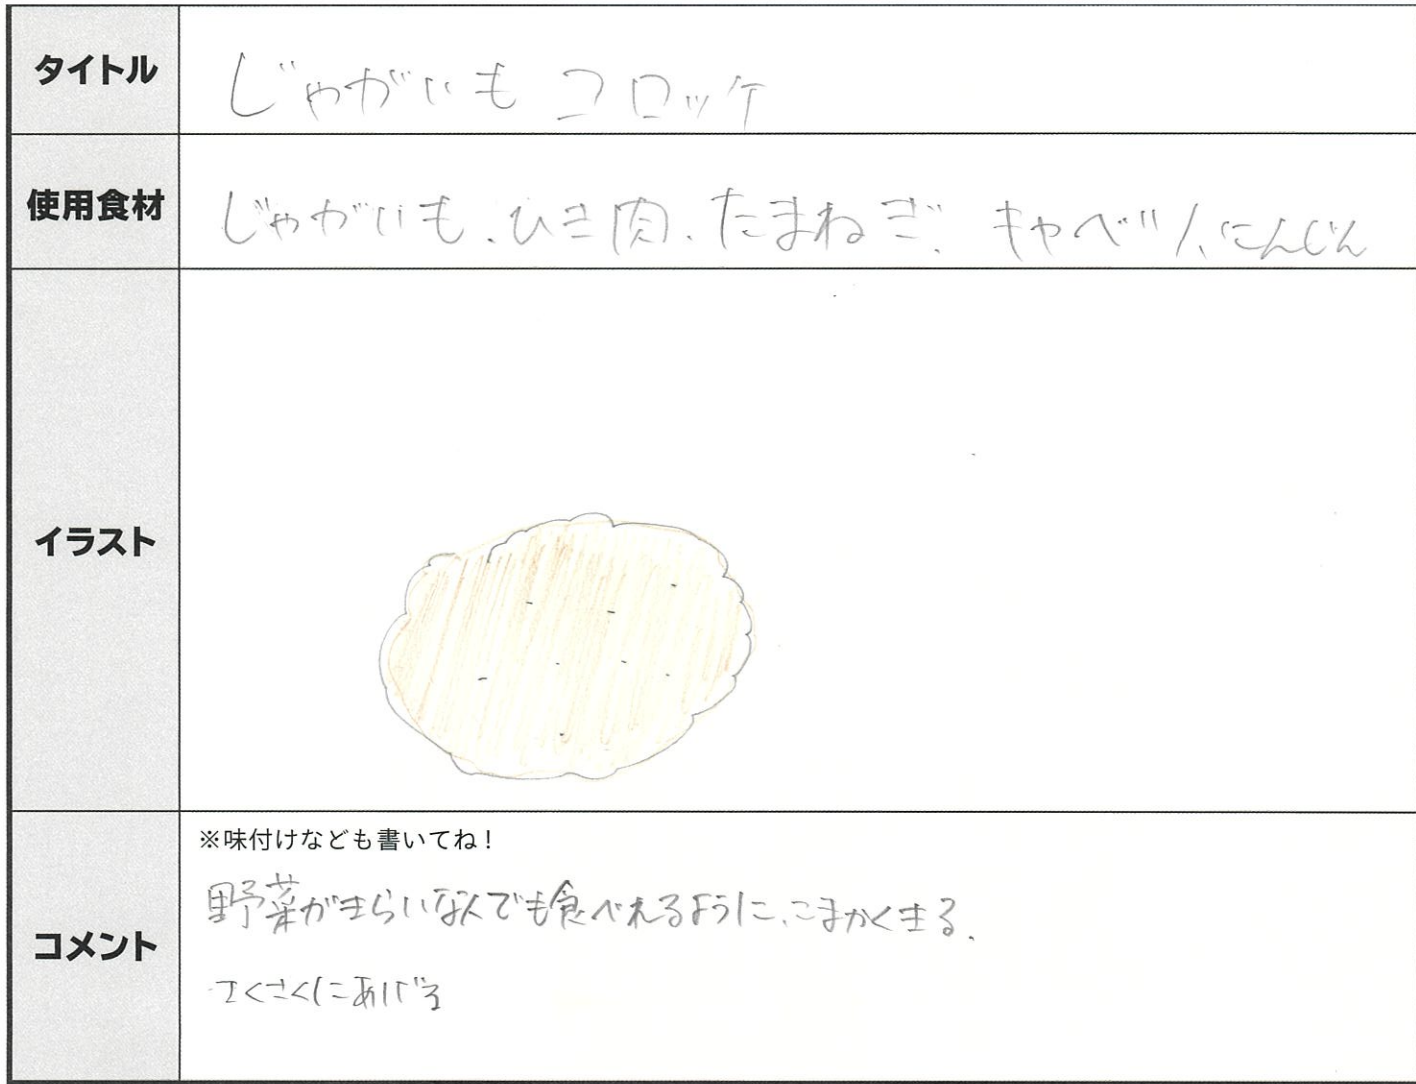 タイトル
じゃがいもコロッケ
使用食材
じゃがいも、ひき肉、たまねぎ、キャベツ、にんじん
イラスト
コメント
※味付けなども書いてね！
野菜がきらいな人でも食べれるように、こまかくきる。
さくさくにあげる